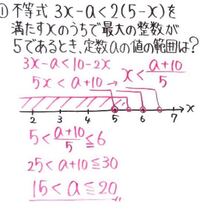 ① 不等式 3x-a<2(5-x)を
満たすxのうちで最大の整数が
5であるとき、定数aの値の範囲は?
3x-a<10-2x
5x<a+10 → x< a+10/5
2 3 4 5 6 7 x
5< a+10/5 ≦6
25<a+10≦30
15<a≦20